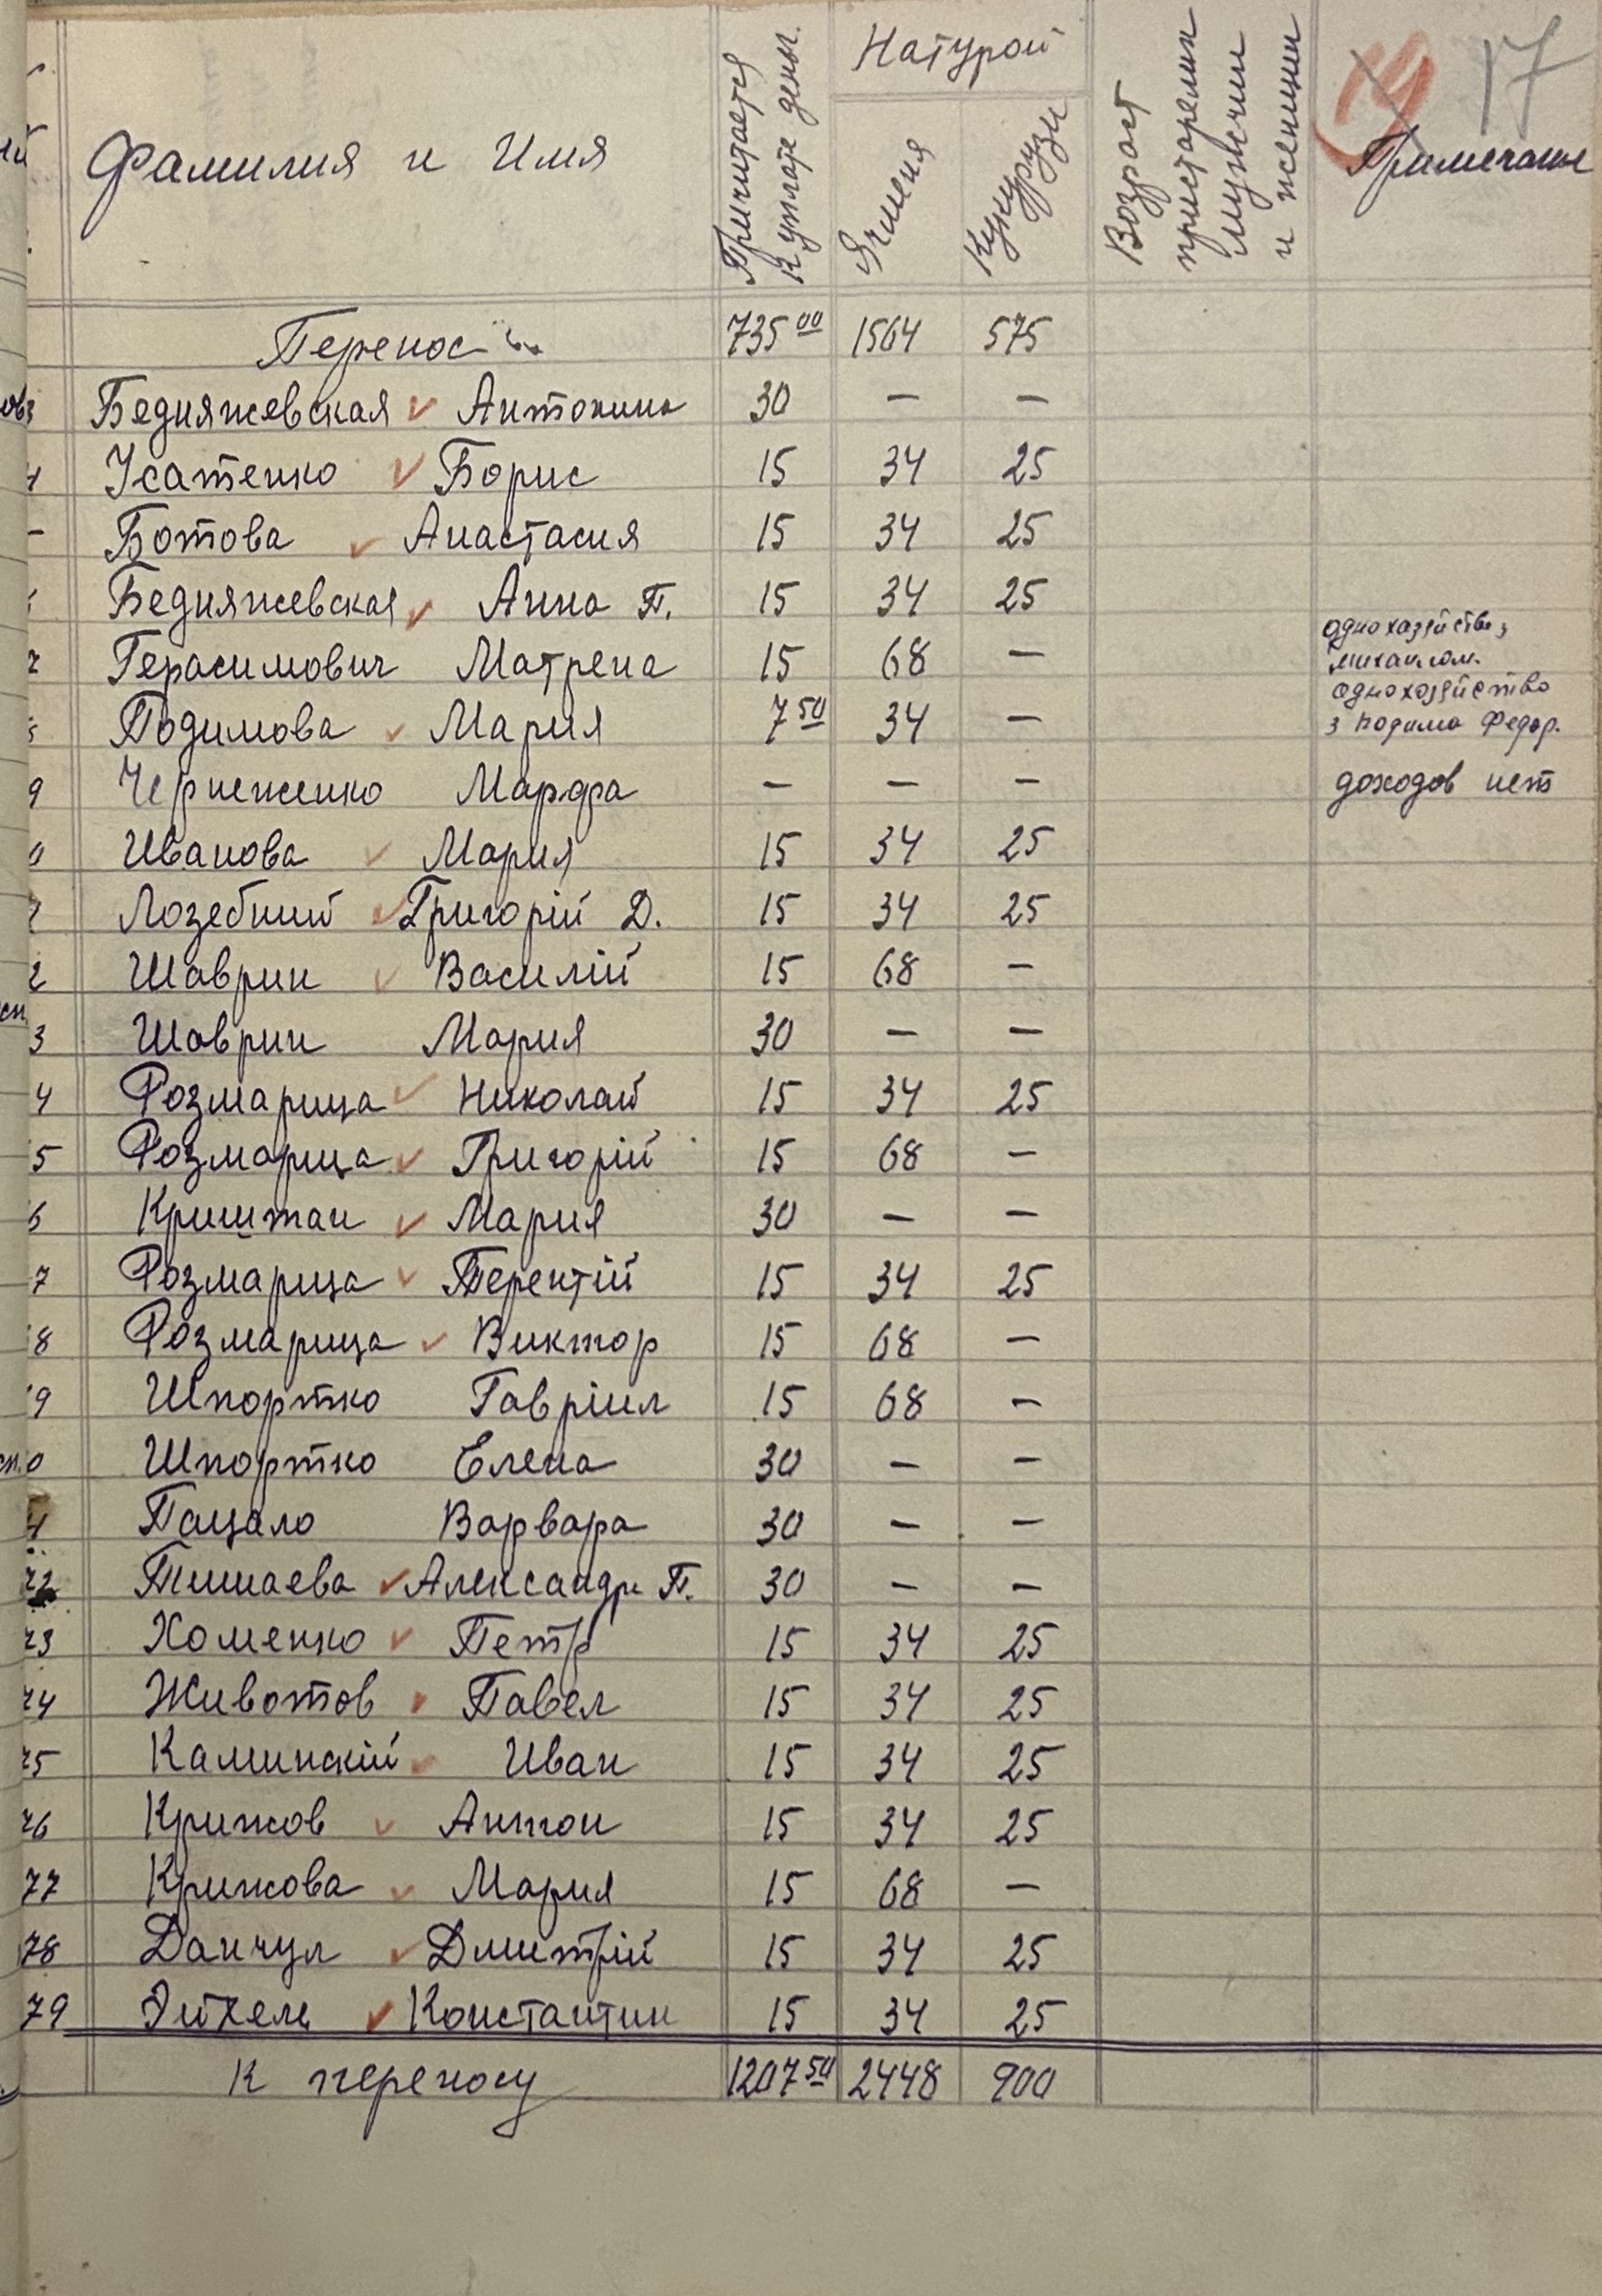 19 17
Фамилия и Имя
Причитается к уплате деньг.
Натурой
Ячменя
Кукурузи
Возраст пристарелих мужчин и женщин
Примечание
Перенос 735 00 1564 575
Бедняжевская Антонина 30 — —
4 Усатенко Борис 15 34 25
Ботова Анастасия 15 34 25
Бедняжевская Анна П. 15 34 25
Герасимович Матрена 15 68 — однохазяйство з михаилом.
Подимова Мария 7 50 34 — однохозяйство з подима Федор.
9 Чернеженко Марфа — — — доходов нет
0 Иванова Мария 15 34 25
Лозебний Григорій Д. 15 34 25
2 Шаврин Василій 15 68 —
3 Шаврин Мария 30 — —
4 Розмарица Николай 15 34 25
5 Розмарица Григорій 15 68 —
6 Криштан Мария 30 — —
7 Розмарица Терентій 15 34 25
8 Розмарица Виктор 15 68 —
9 Шпортко Гавріил 15 68 —
0 Шпортко Елена 30 — —
Пацало Варвара 30 — —
72 Тишаева Александр П. 30 — —
73 Хоменко Петр 15 34 25
74 Животов Павел 15 34 25
75 Каминскій Иван 15 34 25
76 Крижов Антон 15 34 25
77 Крижова Мария 15 68 —
78 Данчул Дмитрій 15 34 25
79 Эйхелц Константин 15 34 25
К переносу 1207 50 2448 900